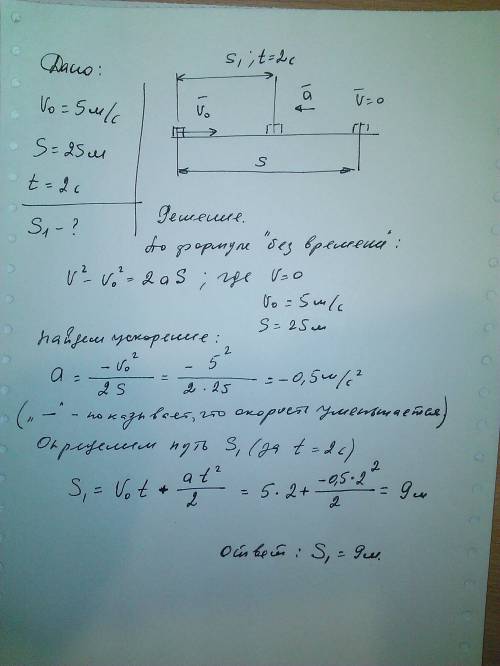 Дано:
V₀ = 5 м/с
S = 25 м
t = 2 с
S₁ - ?
S₁ ; t = 2с
V̄₀
ā
V̄ = 0
S
Решение.
По формуле "без времени":
V² - V₀² = 2aS ; где V = 0
V₀ = 5 м/с
S = 25 м
Найдем ускорение:
a = -V₀² / 2S = -5² / 2·25 = -0,5 м/с²
(„—" - показывает, что скорость уменьшается)
Определяем путь S₁ (за t = 2с)
S₁ = V₀t + at²/2 = 5·2 + -0,5·2²/2 = 9 м
Ответ: S₁ = 9м.